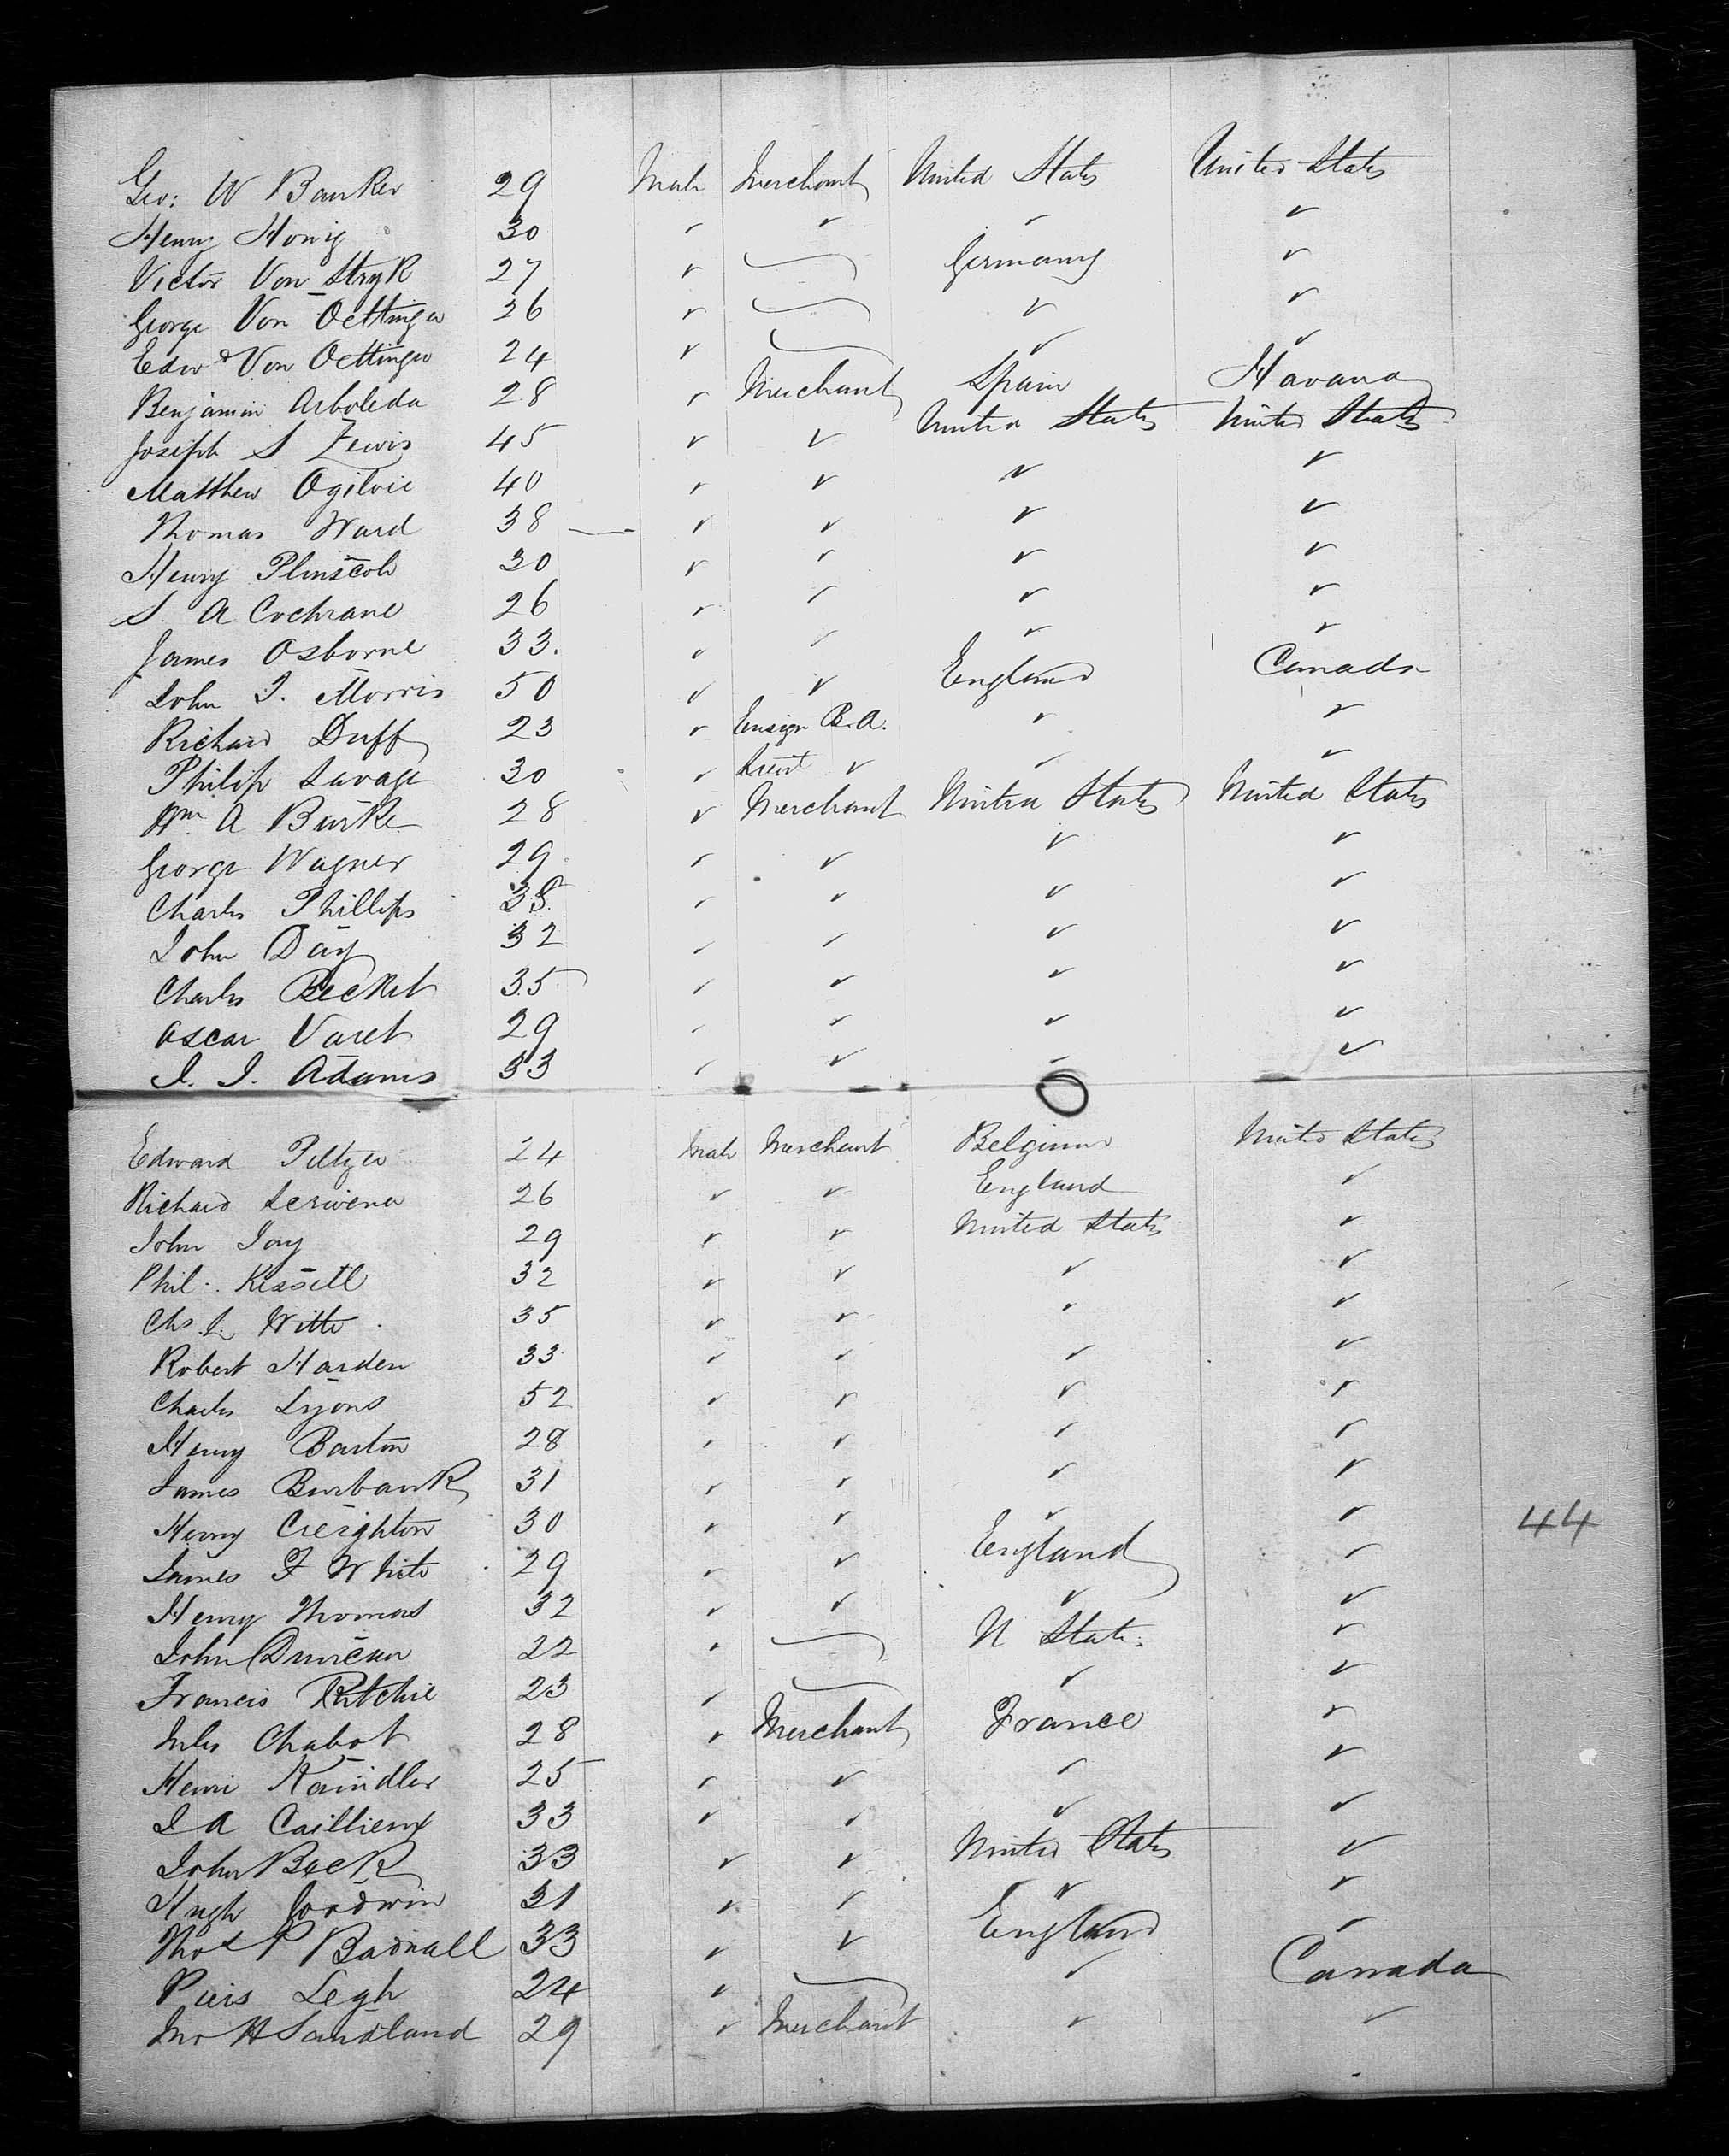 Geo: W Banker 29 Male Merchant United States United States
Henry Honig 30 ✓ ✓ ✓ ✓
Victor Von Stryk 27 ✓ — Germany ✓
George Von Oettinger 26 ✓ — ✓ ✓
Edwd Von Oettinger 24 ✓ — ✓ ✓
Benjamin Arboleda 28 ✓ Merchant Spain Havana
Joseph S Lewis 45 ✓ ✓ United States United States
Matthew Ogilvie 40 ✓ ✓ ✓ ✓
Thomas Ward 38 — ✓ ✓ ✓ ✓
Henry 30 ✓ ✓ ✓ ✓
S. A Cochrane 26 ✓ ✓ ✓ ✓
James Osborne 33. ✓ ✓ ✓ ✓
John J. Morris 50 ✓ ✓ England Canada
Richard Duff 23 ✓ Ensign B.A. ✓ ✓
Philip Savage 30 ✓ Lieut ✓ ✓ ✓
Wm A Burke 28 ✓ Merchant United States United States
George Wagner 29 ✓ ✓ ✓ ✓
Charles Phillips 38 ✓ ✓ ✓ ✓
John Day 32 ✓ ✓ ✓ ✓
Charles Becket 35 ✓ ✓ ✓ ✓
Oscar Varet 29 ✓ ✓ ✓ ✓
J. J. Adams 33 ✓ ✓ ✓ ✓
Edward Peltzer 24 Male Merchant Belgium United States
Richard Scrivener 26 ✓ ✓ England ✓
John Jay 29 ✓ ✓ United States ✓
Phil. Kissell 32 ✓ ✓ ✓ ✓
Chs. L. Witte 35 ✓ ✓ ✓ ✓
Robert Harden 33 ✓ ✓ ✓ ✓
Charles Lyons 52 ✓ ✓ ✓ ✓
Henry Barton 28 ✓ ✓ ✓ ✓
James Burbank 31 ✓ ✓ ✓ ✓
Henry Creighton 30 ✓ ✓ ✓ ✓ 44
James F White 29 ✓ ✓ England ✓
Henry Thomas 32 ✓ ✓ ✓ ✓
John Duncan 22 ✓ — U States ✓
Francis Ritchie 23 ✓ — ✓ ✓
Jules Chabot 28 ✓ Merchant France ✓
Henri Kaindler 25 ✓ ✓ ✓ ✓
J A Caillieux 33 ✓ ✓ ✓ ✓
John Beck 33 ✓ ✓ United States ✓
Hugh Goodwin 31 ✓ ✓ ✓ ✓
Thos P Badnall 33 ✓ ✓ England ✓
Piers Legh 24 ✓ — ✓ Canada
Jno H Sandland 29 ✓ Merchant ✓ ✓